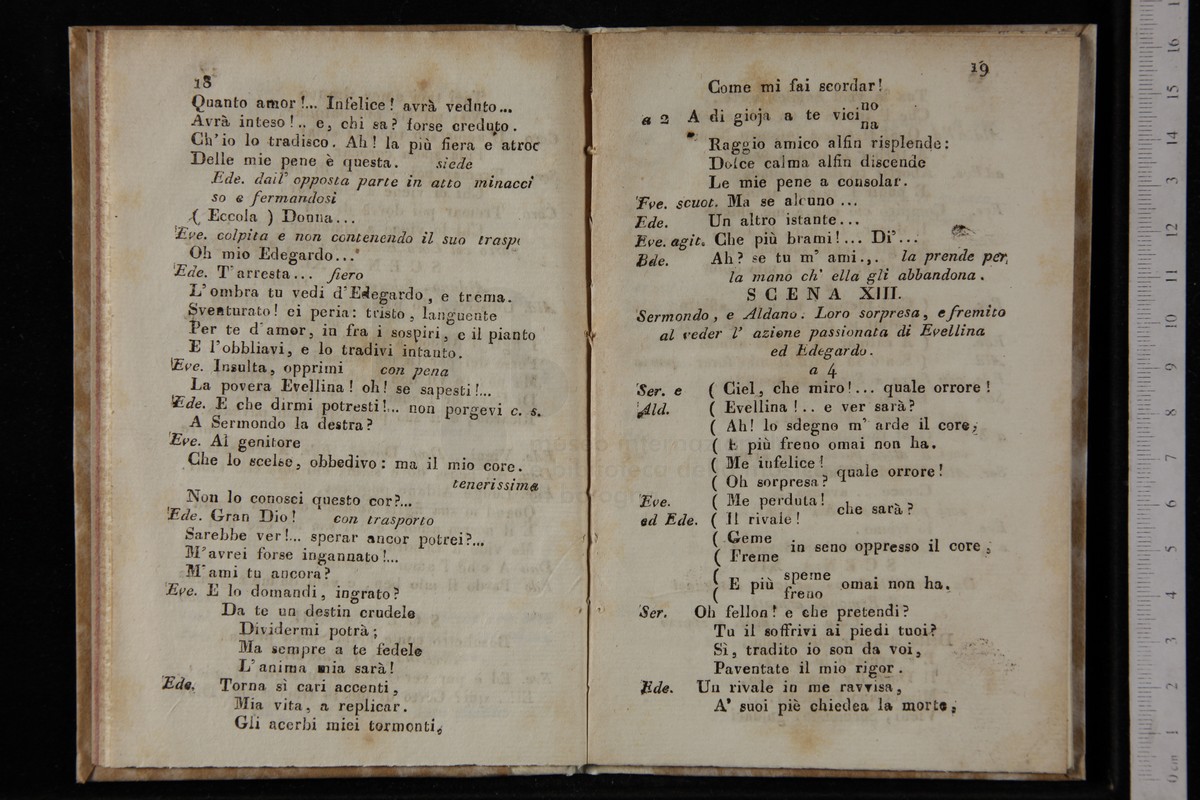 18
Quanto amor!... Infelice! avrà veduto...
Avrà inteso!.. e, chi sa? forse creduto.
Ch'io lo tradisco. Ah! la più fiera e atroc
Delle mie pene è questa. siede
Ede. dall' opposta parte in atto minacci
so e fermandosi
( Eccola ) Donna...
Eve. colpita e non contenendo il suo trasp
Oh mio Edegardo...
Ede. T'arresta... fiero
L'ombra tu vedi d'Edegardo, e trema.
Sventurato! ei peria: tristo, languente
Per te d'amor, in fra i sospiri, e il pianto
E l'obbliavi, e lo tradivi intanto.
Eve. Insulta, opprimi con pena
La povera Evellina! oh! se sapesti!...
Ede. E che dirmi potresti!... non porgevi c. s.
A Sermondo la destra?
Eve. Al genitore
Che lo scelse, obbedivo: ma il mio core.
tenerissima
Non lo conosci questo cor?...
Ede. Gran Dio! con trasporto
Sarebbe ver!... sperar ancor potrei?...
M'avrei forse ingannato!...
M'ami tu ancora?
Eve. E lo domandi, ingrato?
Da te un destin crudele
Dividermi potrà;
Ma sempre a te fedele
L'anima mia sarà!
Ede. Torna sì cari accenti,
Mia vita, a replicar.
Gli acerbi miei tormenti,
19
Come mi fai scordar!
a 2 A di gioja a te vicino
na
Raggio amico alfin risplende:
Dolce calma alfin discende
Le mie pene a consolar.
Eve. scuot. Ma se alcuno...
Ede. Un altro istante...
Eve. agit. Che più brami!... Di'...
Ede. Ah? se tu m' ami.,. la prende per
la mano ch' ella gli abbandona.
SCENA XIII.
Sermondo, e Aldano. Loro sorpresa, e fremito
al veder l' azione passionata di Evellina
ed Edegardo.
a 4
Ser. e ( Ciel, che miro!... quale orrore!
Ald. ( Evellina!.. e ver sarà?
( Ah! lo sdegno m' arde il core;
( E più freno omai non ha.
( Me infelice! quale orrore!
( Oh sorpresa?
Eve. ( Me perduta! che sarà?
ed Ede. ( Il rivale!
( Geme in seno oppresso il core,
( Freme
( E più speme omai non ha.
( freno
Ser. Oh fellon! e che pretendi?
Tu il soffrivi ai piedi tuoi?
Sì, tradito io son da voi,
Paventate il mio rigor.
Ede. Un rivale in me ravvisa,
A' suoi piè chiedea la morte;